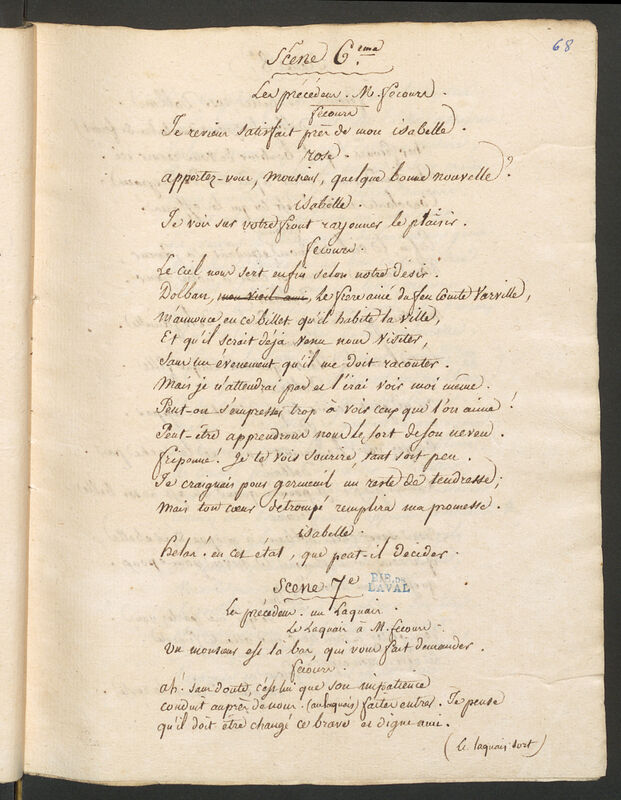 68
Scene 6.ema
Les précédens. M. fécourt.
fécourt
Je reviens satisfait près de mon isabelle.
rose.
apportez-vous, monsieur, quelque bonne nouvelle?
isabelle.
Je vois sur votre front rayonner le plaisir.
fécourt.
Le Ciel nous sert enfin selon notre desir.
Dolban, mon vieil ami, le frere ainé du feu Comte Varville,
M'annonce en ce billet qu'il habite la ville,
Et qu'il seroit déja venu nous visiter,
sans un évenement qu'il me doit raconter.
Mais je n'attendrai pas et l'irai voir moi même.
Peut-on s'empresser trop à voir ceux que l'on aime!
Peut-être apprendrons nous le sort de son neveu.
friponne! Je te vois sourire, tant soit peu.
Je craignais pour germeuil un reste de tendresse;
Mais ton coeur détrompé remplira ma promesse.
isabelle.
helas! en cet état, que peut-il decider.
Scene 7e
BIB. DE
LAVAL
Les précédens. un Laquais.
Le Laquais à M. fécourt.
Un monsieur est la bas, qui vous fait demander.
fécourt.
ah! sans doute, c'est lui que son impatience
conduit auprès de nous. (au laquais) faites entrer. Je pense
qu'il doit être changé ce brave et digne ami.
(le laquais sort)